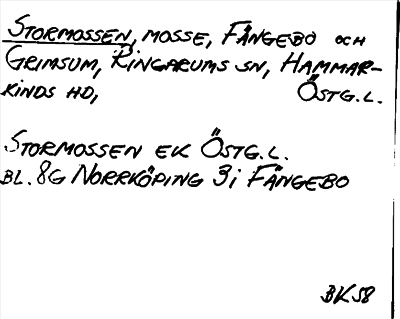 STORMOSSEN, MOSSE, FÅNGEBO OCH
GRIMSUM, RINGARUMS SN, HAMMAR-
KINDS HD, ÖSTG.L.
STORMOSSEN EK ÖSTG.L.
BL. 8G NORRKÖPING 3i FÅNGEBO
BK58